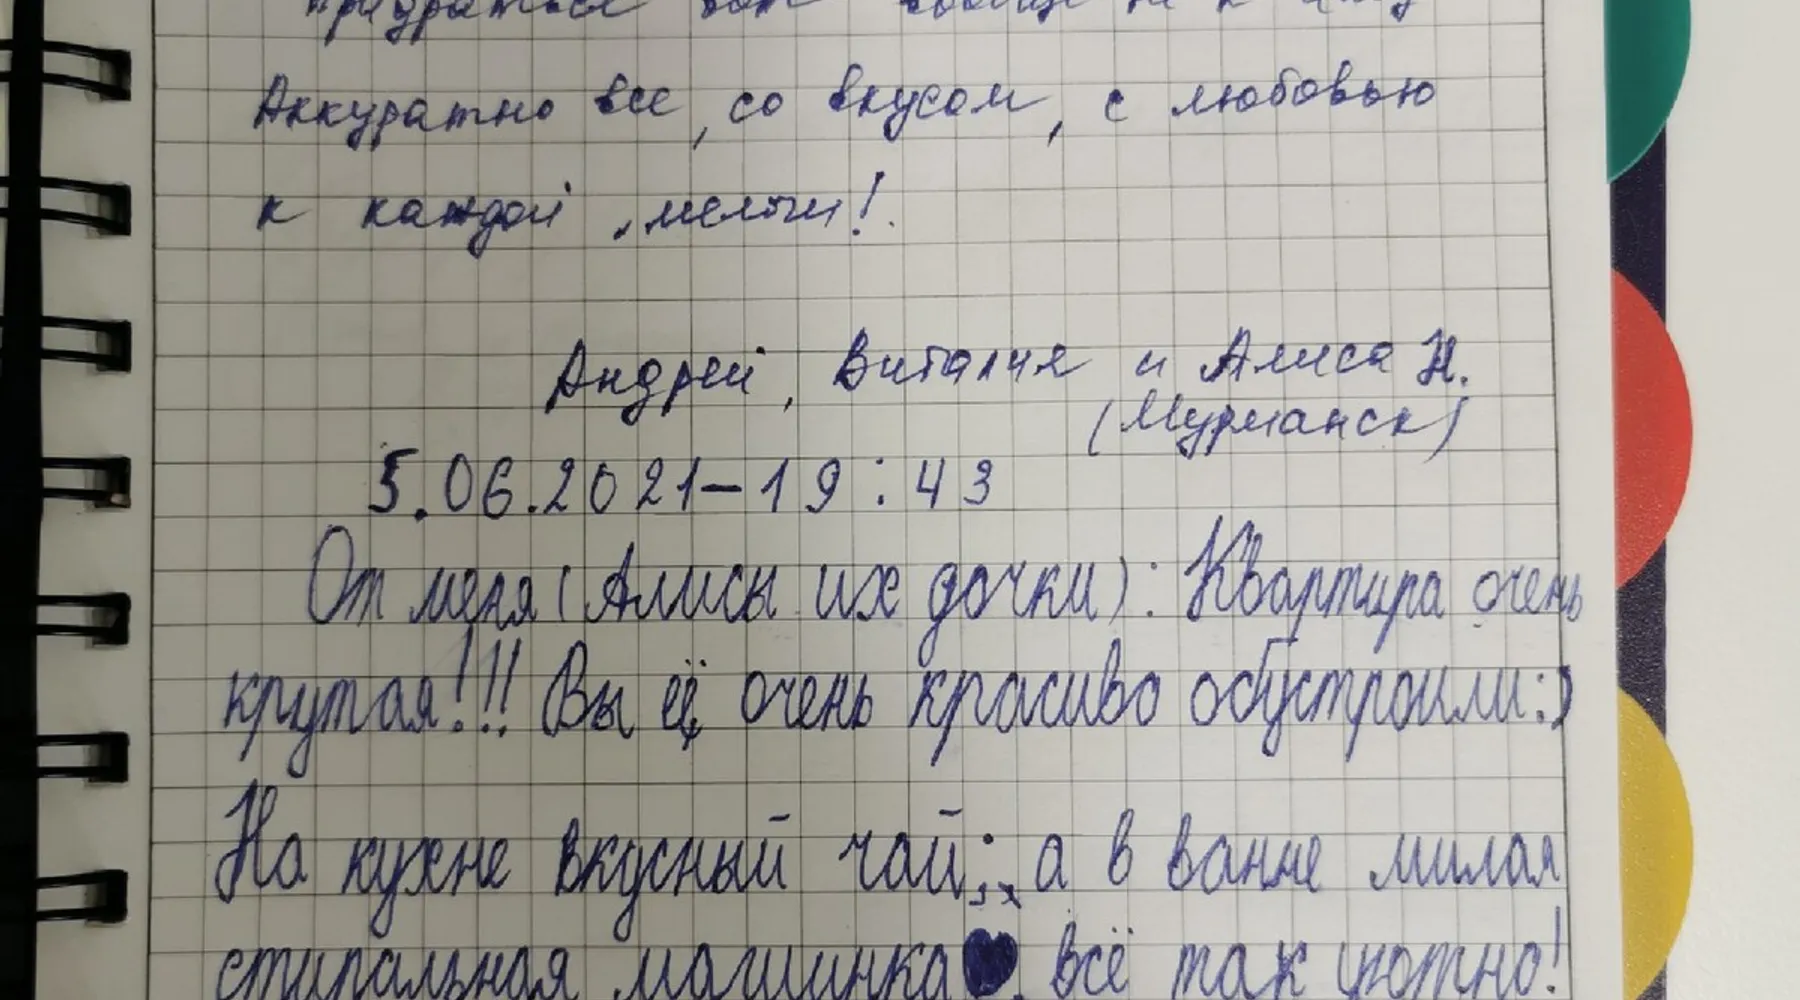 придраться вот вообще не к чему
Аккуратно все, со вкусом, с любовью
к каждой мелочи!
Андрей, Виталия и Алиса Н.
(Мурманск)
5.06.2021-19:43
От меня (Алисы их дочки): Квартира очень
крутая!!! Вы её очень красиво обустроили:)
На кухне вкусный чай;х а в ванне милая
стиральная машинка♥. всё так уютно!